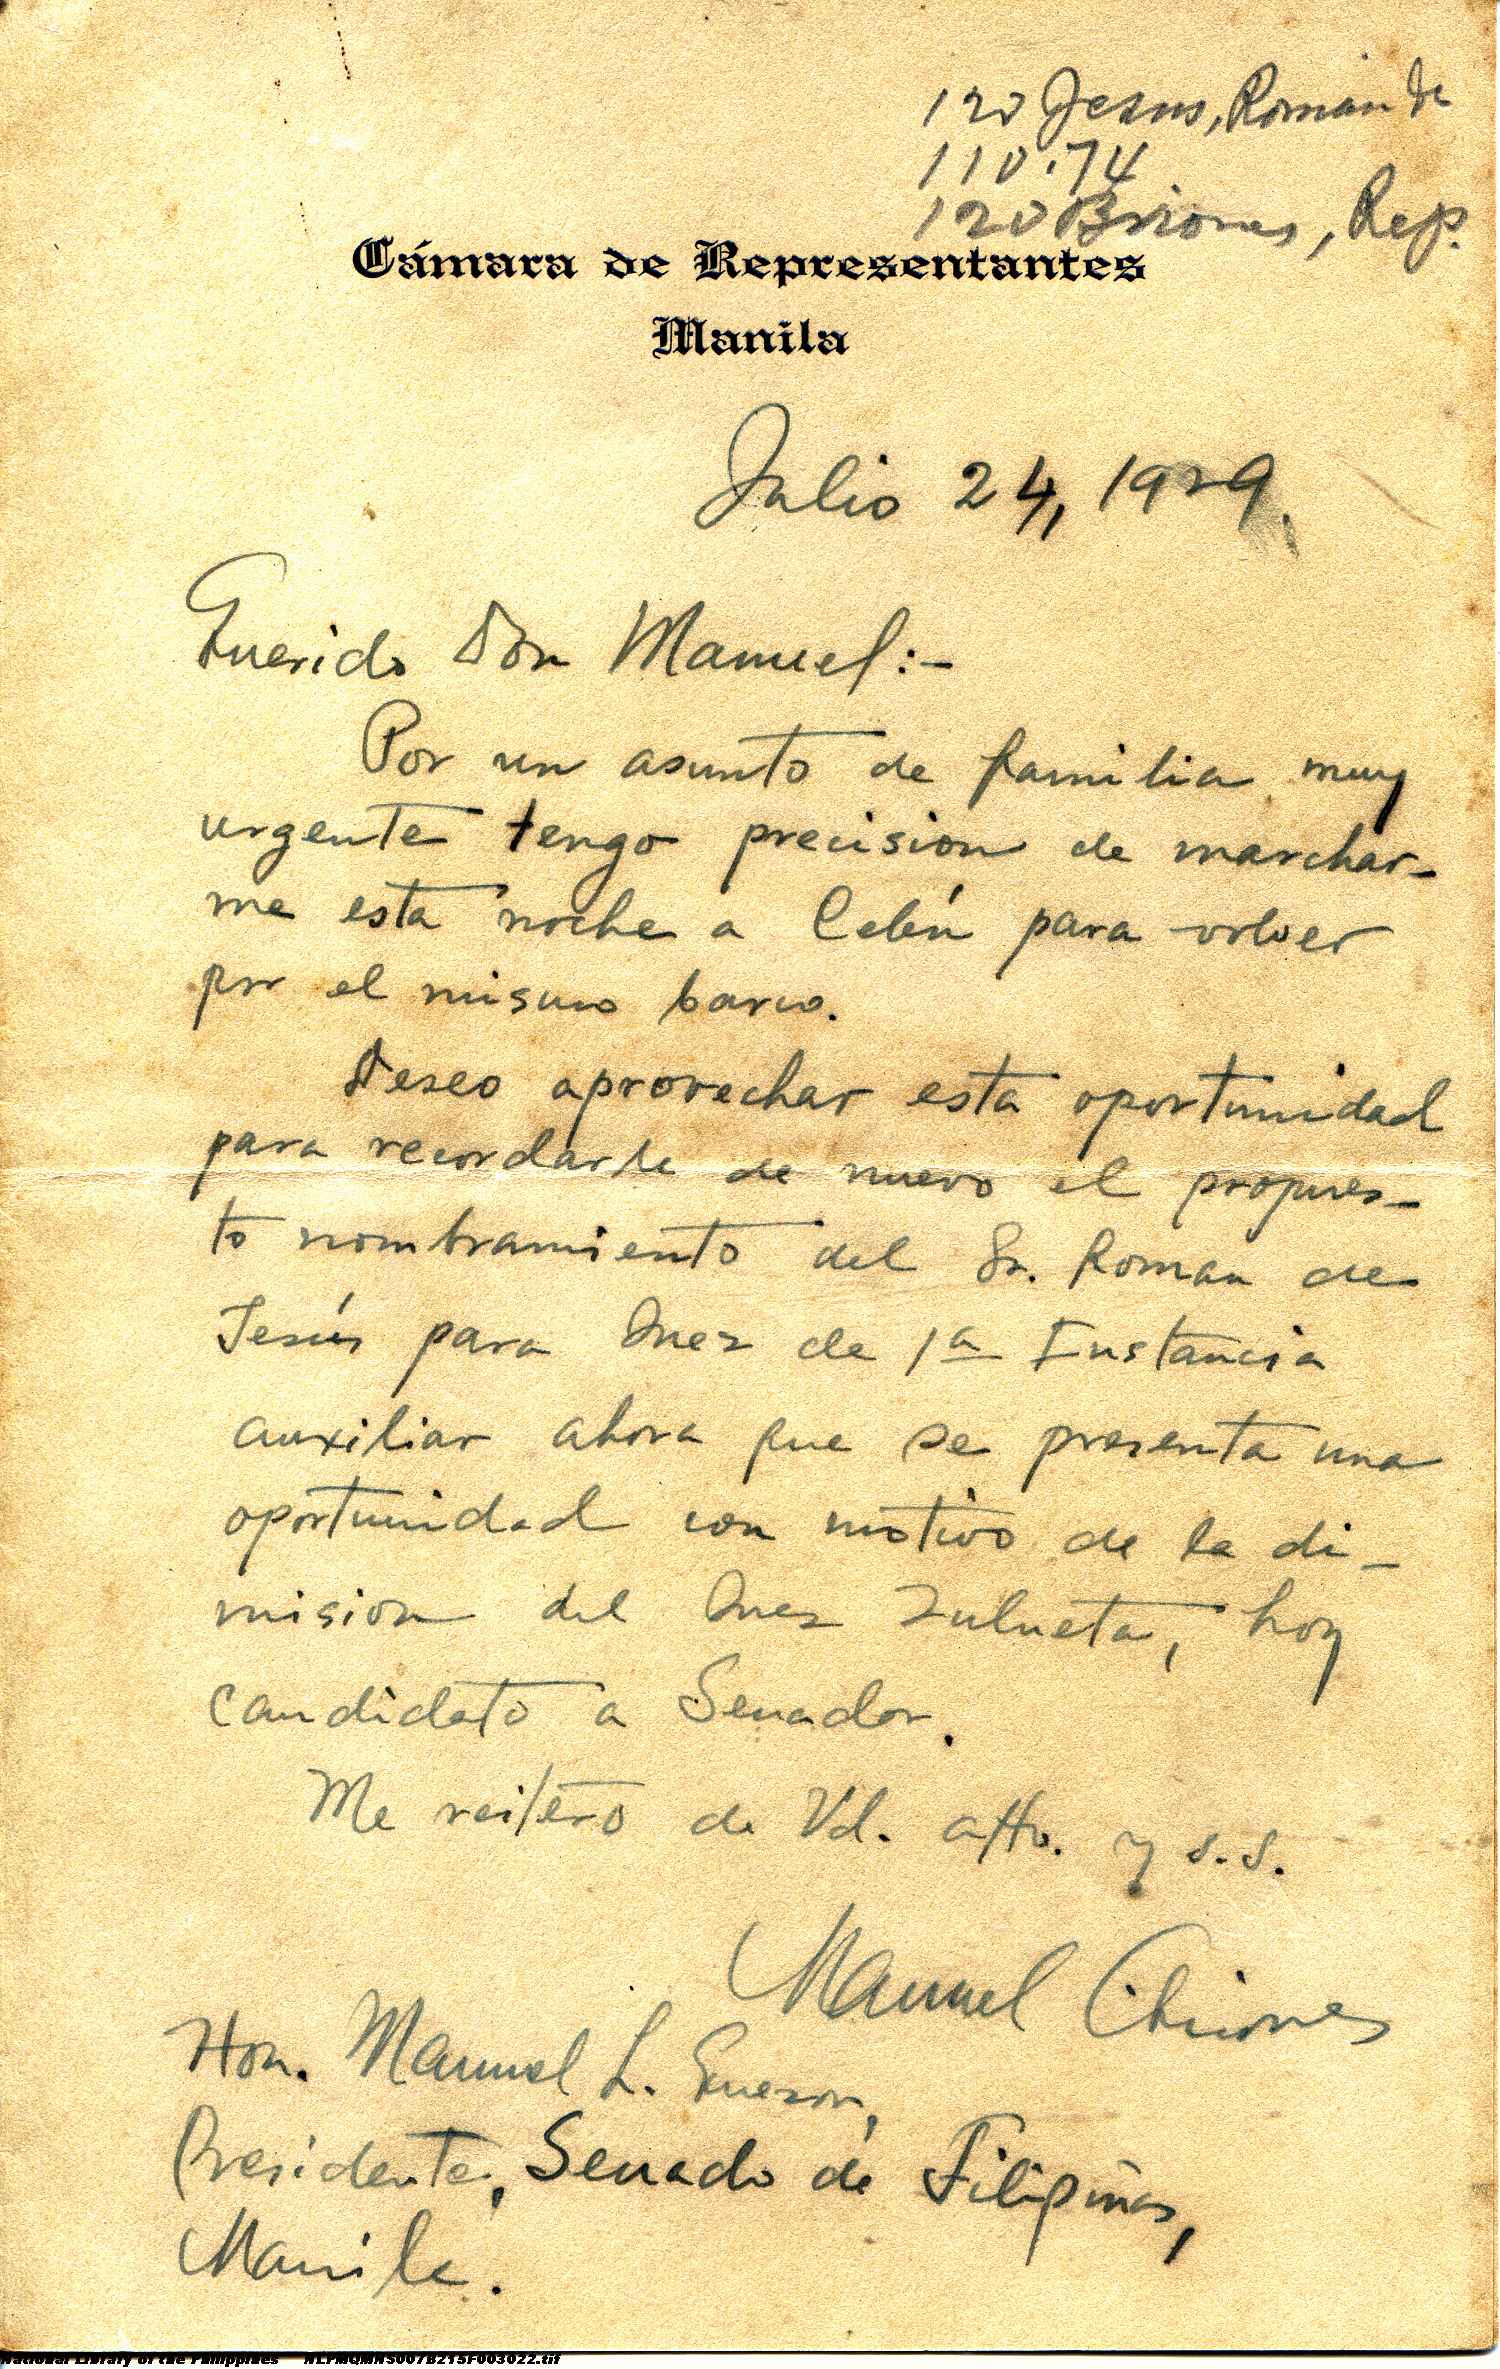 120 Jesus, Roman de
110.74
120 Briones, Rep.
Cámara de Representantes
Manila
Julio 24, 1929.
Querido Don Manuel:-
Por un asunto de familia muy
urgente tengo precision de marchar-
me esta noche a Cebú para volver
por el mismo barco.
Deseo aprovechar esta oportunidad
para recordarle de nuevo el propues-
to nombramiento del Sr. Roman de
Jesús para Juez de 1a Instancia
auxiliar ahora que se presenta una
oportunidad con motivo de la di-
mision del Juez Zulueta, hoy
candidato a Senador.
Me reitero de Vd. atto. y s.s.
Manuel Briones
Hon. Manuel L. Quezon,
Presidente, Senado de Filipinas,
Manila.
National Library of the Philippines NLPMQMNS007B215F003022.tif